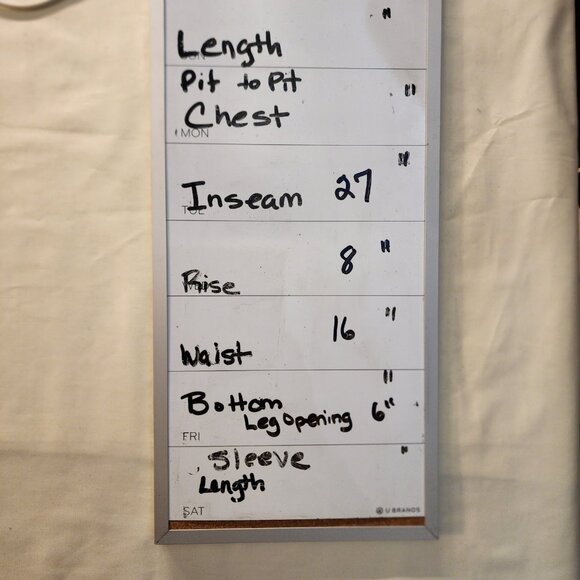 "
Length
Pit to Pit "
Chest
MON
Inseam 27 "
Rise 8 "
Waist 16 "
Bottom "
Leg Opening 6"
FRI
Sleeve "
Length
SAT U BRANDS